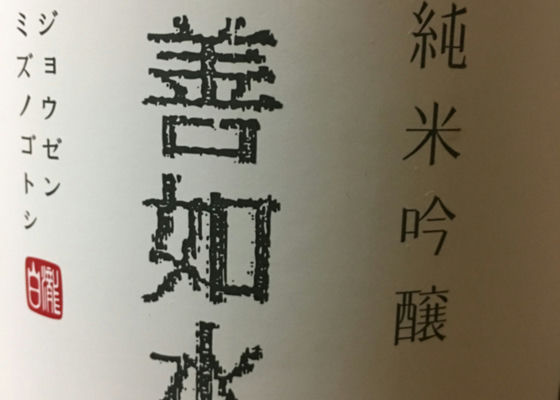 純米吟醸
善如水
ジョウゼン
ミズノゴトシ
白瀧